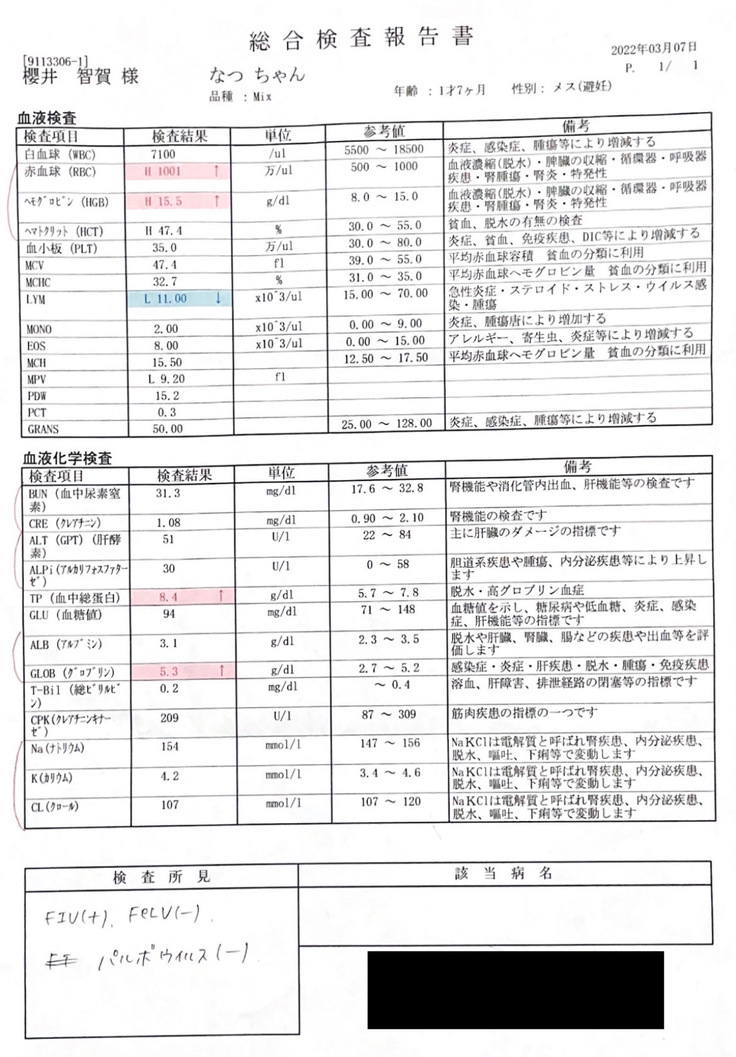 総合検査報告書
2022年03月07日
P. 1/ 1
[9113306-1]
櫻井 智賀 様 なつ ちゃん
品種 : Mix 年齢 : 1才7ヶ月 性別 : メス(避妊)
血液検査
検査項目 検査結果 単位 参考値 備考
白血球 (WBC) 7100 /ul 5500 ～ 18500 炎症、感染症、腫瘍等により増減する
赤血球 (RBC) H 1001 ↑ 万/ul 500 ～ 1000 血液濃縮(脱水)・脾臓の収縮・循環器・呼吸器
疾患・腎腫瘍・腎炎・特発性
ﾍﾓｸﾞﾛﾋﾞﾝ (HGB) H 15.5 ↑ g/dl 8.0 ～ 15.0 血液濃縮(脱水)・脾臓の収縮・循環器・呼吸器
疾患・腎腫瘍・腎炎・特発性
ﾍﾏﾄｸﾘｯﾄ (HCT) H 47.4 % 30.0 ～ 55.0 貧血、脱水の有無の検査
血小板 (PLT) 35.0 万/ul 30.0 ～ 80.0 炎症、貧血、免疫疾患、DIC等により増減する
MCV 47.4 fl 39.0 ～ 55.0 平均赤血球容積 貧血の分類に利用
MCHC 32.7 % 31.0 ～ 35.0 平均赤血球ヘモグロビン量 貧血の分類に利用
LYM L 11.00 ↓ x10^3/ul 15.00 ～ 70.00 急性炎症・ステロイド・ストレス・ウイルス感
染・腫瘍
MONO 2.00 x10^3/ul 0.00 ～ 9.00 炎症、腫瘍唐により増加する
EOS 8.00 x10^3/ul 0.00 ～ 15.00 アレルギー、寄生虫、炎症等により増減する
MCH 15.50 12.50 ～ 17.50 平均赤血球ヘモグロビン量 貧血の分類に利用
MPV L 9.20 fl
PDW 15.2
PCT 0.3
GRANS 50.00 25.00 ～ 128.00 炎症、感染症、腫瘍等により増減する
血液化学検査
検査項目 検査結果 単位 参考値 備考
BUN (血中尿素窒 31.3 mg/dl 17.6 ～ 32.8 腎機能や消化管内出血、肝機能等の検査です
素)
CRE (ｸﾚｱﾁﾆﾝ) 1.08 mg/dl 0.90 ～ 2.10 腎機能の検査です
ALT (GPT) (肝酵 51 U/l 22 ～ 84 主に肝臓のダメージの指標です
素)
ALPi(ｱﾙｶﾘﾌｫｽﾌｧﾀｰ 30 U/l 0 ～ 58 胆道系疾患や腫瘍、内分泌疾患等により上昇し
ｾﾞ) ます
TP (血中総蛋白) 8.4 ↑ g/dl 5.7 ～ 7.8 脱水・高グロブリン血症
GLU (血糖値) 94 mg/dl 71 ～ 148 血糖値を示し、糖尿病や低血糖、炎症、感染
症、肝機能等の指標です
ALB (ｱﾙﾌﾞﾐﾝ) 3.1 g/dl 2.3 ～ 3.5 脱水や肝臓、腎臓、腸などの疾患や出血等を評
価します
GLOB (ｸﾞﾛﾌﾞﾘﾝ) 5.3 ↑ g/dl 2.7 ～ 5.2 感染症・炎症・肝疾患・脱水・腫瘍・免疫疾患
T-Bil (総ﾋﾞﾘﾙﾋﾞ 0.2 mg/dl ～ 0.4 溶血、肝障害、排泄経路の閉塞等の指標です
ﾝ)
CPK(ｸﾚｱﾁﾆﾝｷﾅｰ 209 U/l 87 ～ 309 筋肉疾患の指標の一つです
ｾﾞ)
Na(ﾅﾄﾘｳﾑ) 154 mmol/l 147 ～ 156 NaKClは電解質と呼ばれ腎疾患、内分泌疾患、
脱水、嘔吐、下痢等で変動します
K(ｶﾘｳﾑ) 4.2 mmol/l 3.4 ～ 4.6 NaKClは電解質と呼ばれ腎疾患、内分泌疾患、
脱水、嘔吐、下痢等で変動します
CL(ｸﾛｰﾙ) 107 mmol/l 107 ～ 120 NaKClは電解質と呼ばれ腎疾患、内分泌疾患、
脱水、嘔吐、下痢等で変動します
検査所見 該当病名
FIV(+), FeLV(-)
パルボウイルス(-)